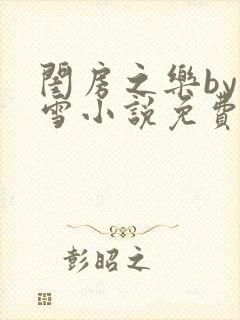 閨房之樂by
雪小說免費
彭昭之